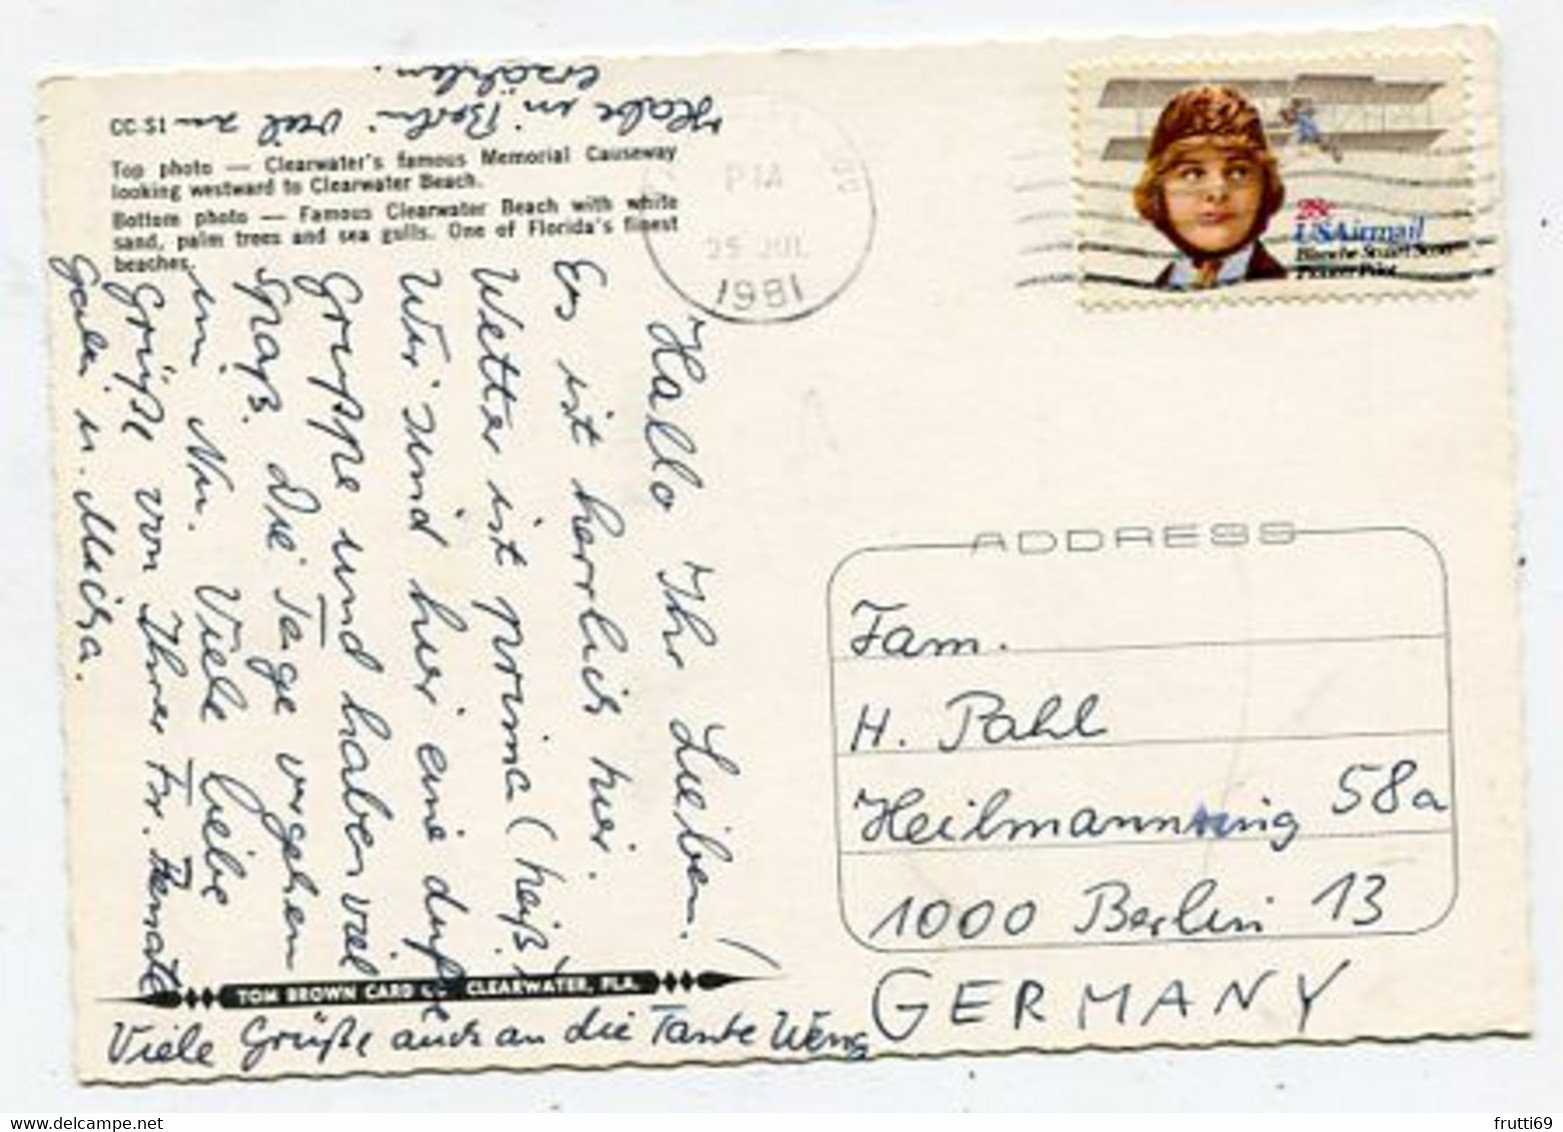 CC-S1
Top photo — Clearwater's famous Memorial Causeway
looking westward to Clearwater Beach.
Bottom photo — Famous Clearwater Beach with white
sand, palm trees and sea gulls. One of Florida's finest
beaches.
Hallo Ihr Lieben!
Es ist herrlich hier.
Wetter ist prima (heiß!)
Wir sind hier eine dufte
Gruppe und haben viel
Spaß. Die Tage vergehen
im Nu. Viele liebe
Grüße von Ihrer Fr. Renate
Gabi u. Micha.
Habe in Berlin viel zu
erzählen.
Viele Grüße auch an die Tante
TOM BROWN CARD CLEARWATER, FLA.
PM
25 JUL
1981
28c
USAirmail
Blanche Stuart Scott
Pioneer Pilot
ADDRESS
Fam.
H. Pahl
Heilmannring 58a
1000 Berlin 13
GERMANY
www.delcampe.net
frutti69